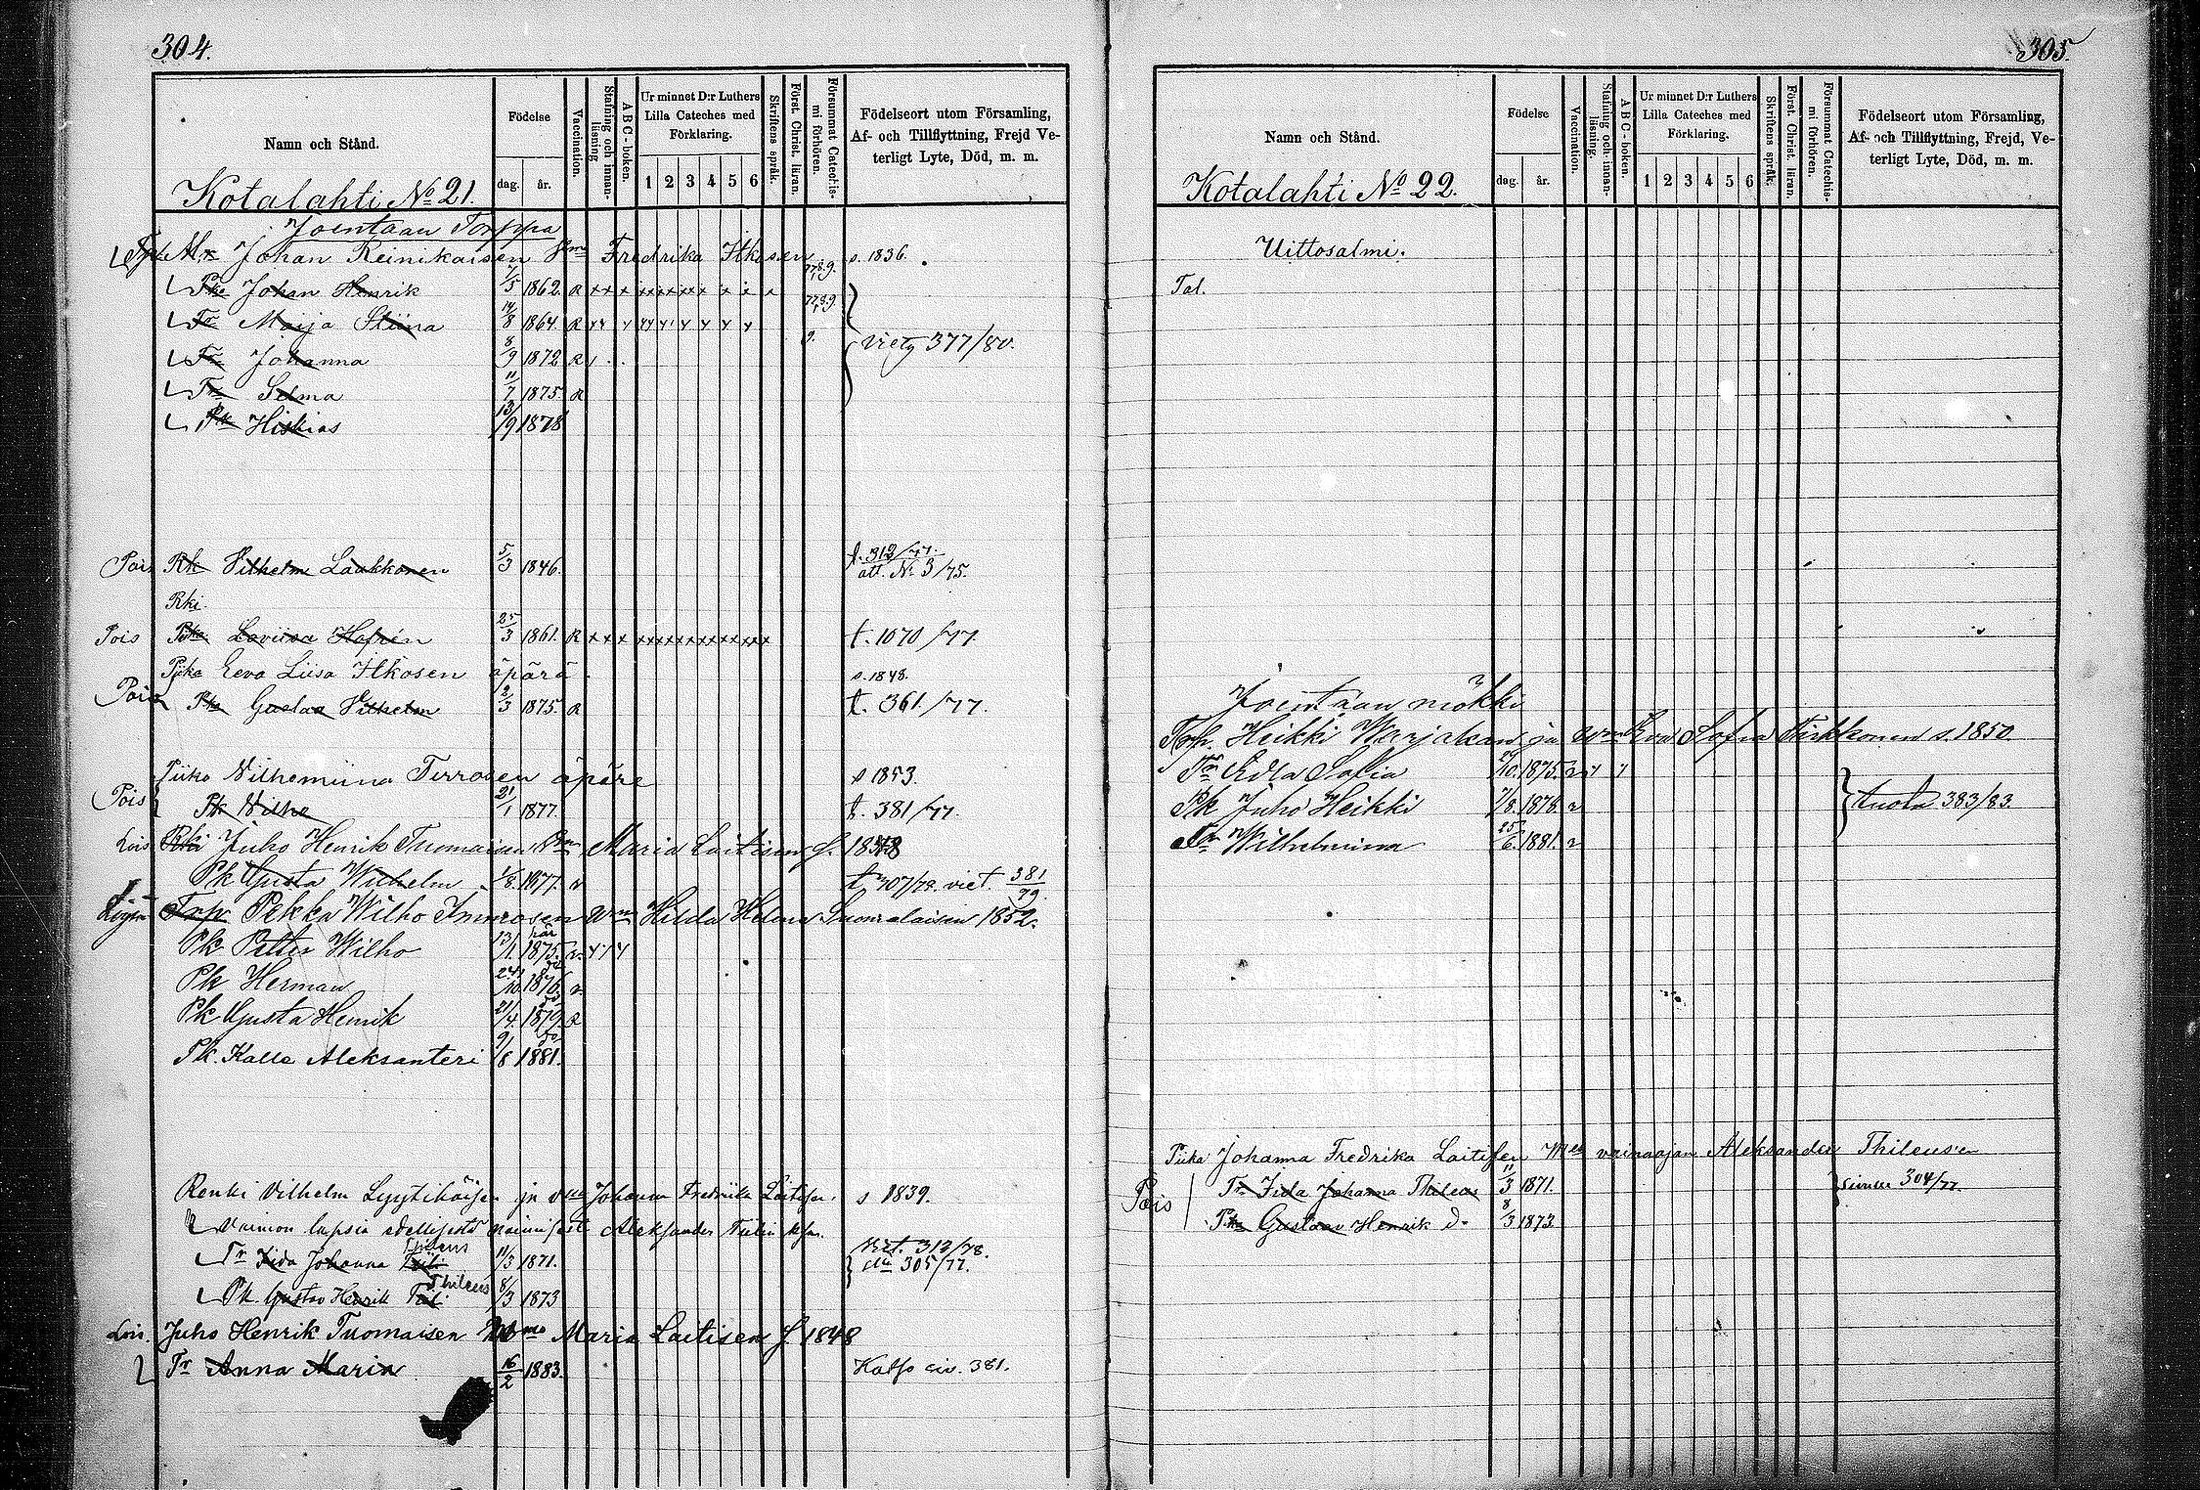 304.
Namn och Stånd.
Födelse
dag. år.
Vaccination.
Stafning och innan-läsning
A B C-boken.
Ur minnet D:r Luthers
Lilla Cateches med
Förklaring.
1 2 3 4 5 6
Skriftens språk.
Först. Christ. läran.
Försummat Catechis-mi förhören.
Födelseort utom Församling,
Af- och Tillflyttning, Frejd Ve-
terligt Lyte, Död, m. m.
Kotalahti No 21.
Joentaan Torppa
Johan Reinikaisen Fredrika Itkosen s. 1836.
77,8,9.
Johan Henrik 7/5 1862. R x x x x x x x x x x x x
77,8,9.
Tr Maija Stiina 14/8 1864. R
9.
Tr Johanna 8/9 1872 R
viety 377/80.
Tr Selma 11/7 1875. R
Pk Hiskias 13/9 1878
Pois Rk Vilhelm Laukkonen 5/3 1846. t. 313/77.
att. No 3/75.
Rki.
Pois Loviisa Hofrén 25/3 1861. R x x x x x x x x x x x t. 1070/77.
Piika Eeva Liisa Itkosen äpärä s. 1848.
Pois Pk Gustaa Vilhelm 2/3 1875. R t. 361./77.
Piika Vilhemiina Tirrosen äpäre s 1853.
Pois Pk Vilhe 21/1 1877. t. 381/77.
Lois Rki Juho Henrik Tuomaisen Maria Laitisen f. 1848
Pk Gusta Wilhelm 1/8. 1877. t. 307/78. viet. 381/79.
Torp Pekka Wilho Immosen Wmo Hilda Helena Suomalaisen 1852.
Pk Petter Wilho 13/1 1875.
Pk Herman 24/10 1876.
Pk Gusta Henrik 21/4. 1879. R
Pk. Kalle Aleksanteri 9/8 1881.
Renki Vilhelm Lyytikäisen ja vmo Johanna Fredriika Laitisen. s 1839.
Vaimon lapsia edellisestä
Thileus
Viet. 313/78.
Tr Fida Johanna 11/3 1871. 305/77.
Thileus
Pk. Gustav Henrik 8/3 1873
Lois. Juho Henrik Tuomaisen Maria Laitisen f 1848
Tr Anna Maria 16/2 1883. Katso siv. 381.
305.
Namn och Stånd.
Födelse
dag. år.
Vaccination.
Stafning och innan-läsning.
A B C-boken.
Ur minnet D:r Luthers
Lilla Cateches med
Förklaring.
1 2 3 4 5 6
Skriftens språk.
Först. Christ. läran.
Försummat Catechis-mi förhören.
Födelseort utom Församling,
Af- och Tillflyttning, Frejd, Ve-
terligt Lyte, Död, m. m.
Kotalahti No 22.
Uittosalmi.
Tal.
Joentaan mökki
Torp. Heikki Warjakan ja Wmo Eva Sofia Pirkkonen s. 1850.
Tr Edla Sofia 10. 1875.
Pk Juho Heikki 7/8. 1878. tuota 383/83.
Tr Wilhelmiina 25/6. 1881.
Piika Johanna Fredrika Laitisen Mies vainaajan Aleksander Thileus'en
Tr Fida Johanna Thileus 11/3 1871. sivulle 304/77.
Pois
Gustaav Henrik d. 8/3 1873